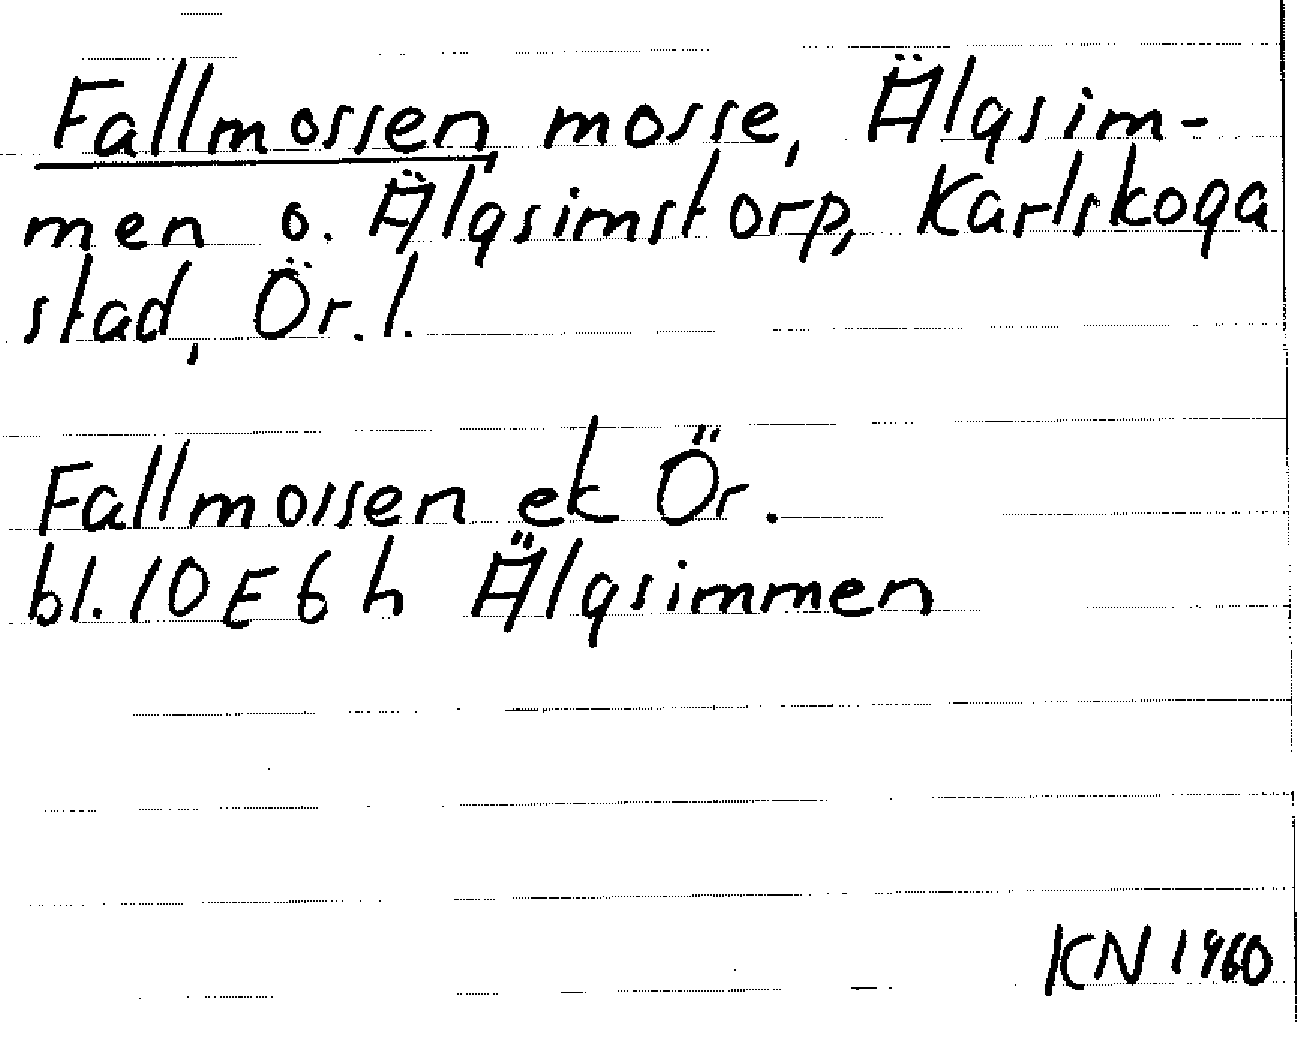 Fallmossen, mosse, Älgsim-
men o. Älgsimstorp, Karlskoga
stad, Ör. l.
Fallmossen ek Ör.
bl. 10 E 6 h Älgsimmen
KN 1960